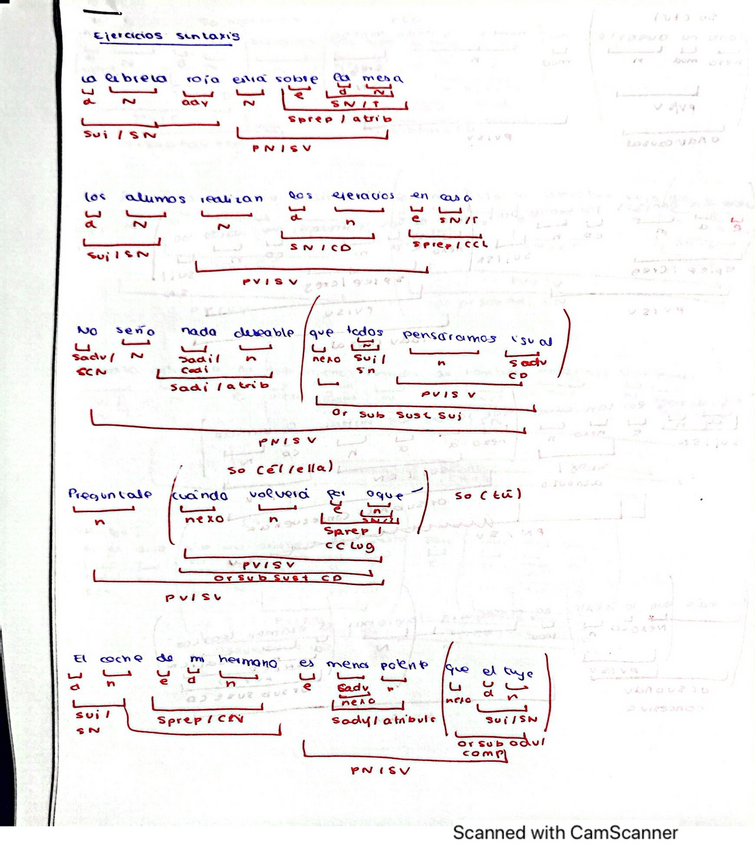 Ejercicios sintaxis
La libreta roja está sobre la mesa
d N adv N e d N
SN/T
Sprep / atrib
Suj / SN
PN/SV
Los alumos realizan los ejercicios en casa
d N N d n e SN/T
Suj / SN SN/CD Sprep/CCL
PV/SV
No sería nada deseable (que todos pensáramos igual)
Sadv/ N Sadj/ n nexo Suj/ n Sadv
CCN Cadj sn CD
Sadj / atrib
PV/SV
Or sub sust suj
PN/SV
SO (él/ella)
Preguntale (cuándo volverá por aquí) SO (tú)
n nexo n e n
SN/T
Sprep /
CC Lug
PV/SV
Or sub sust CD
PV/SV
El coche de mi hermano es menos potente (que el tuyo
d n e d n e Sadv n nexo d n
nexo
Suj/ Sprep / CN Sadj/atributo Suj/SN
SN
Or sub advl
comp
PN/SV
Scanned with CamScanner